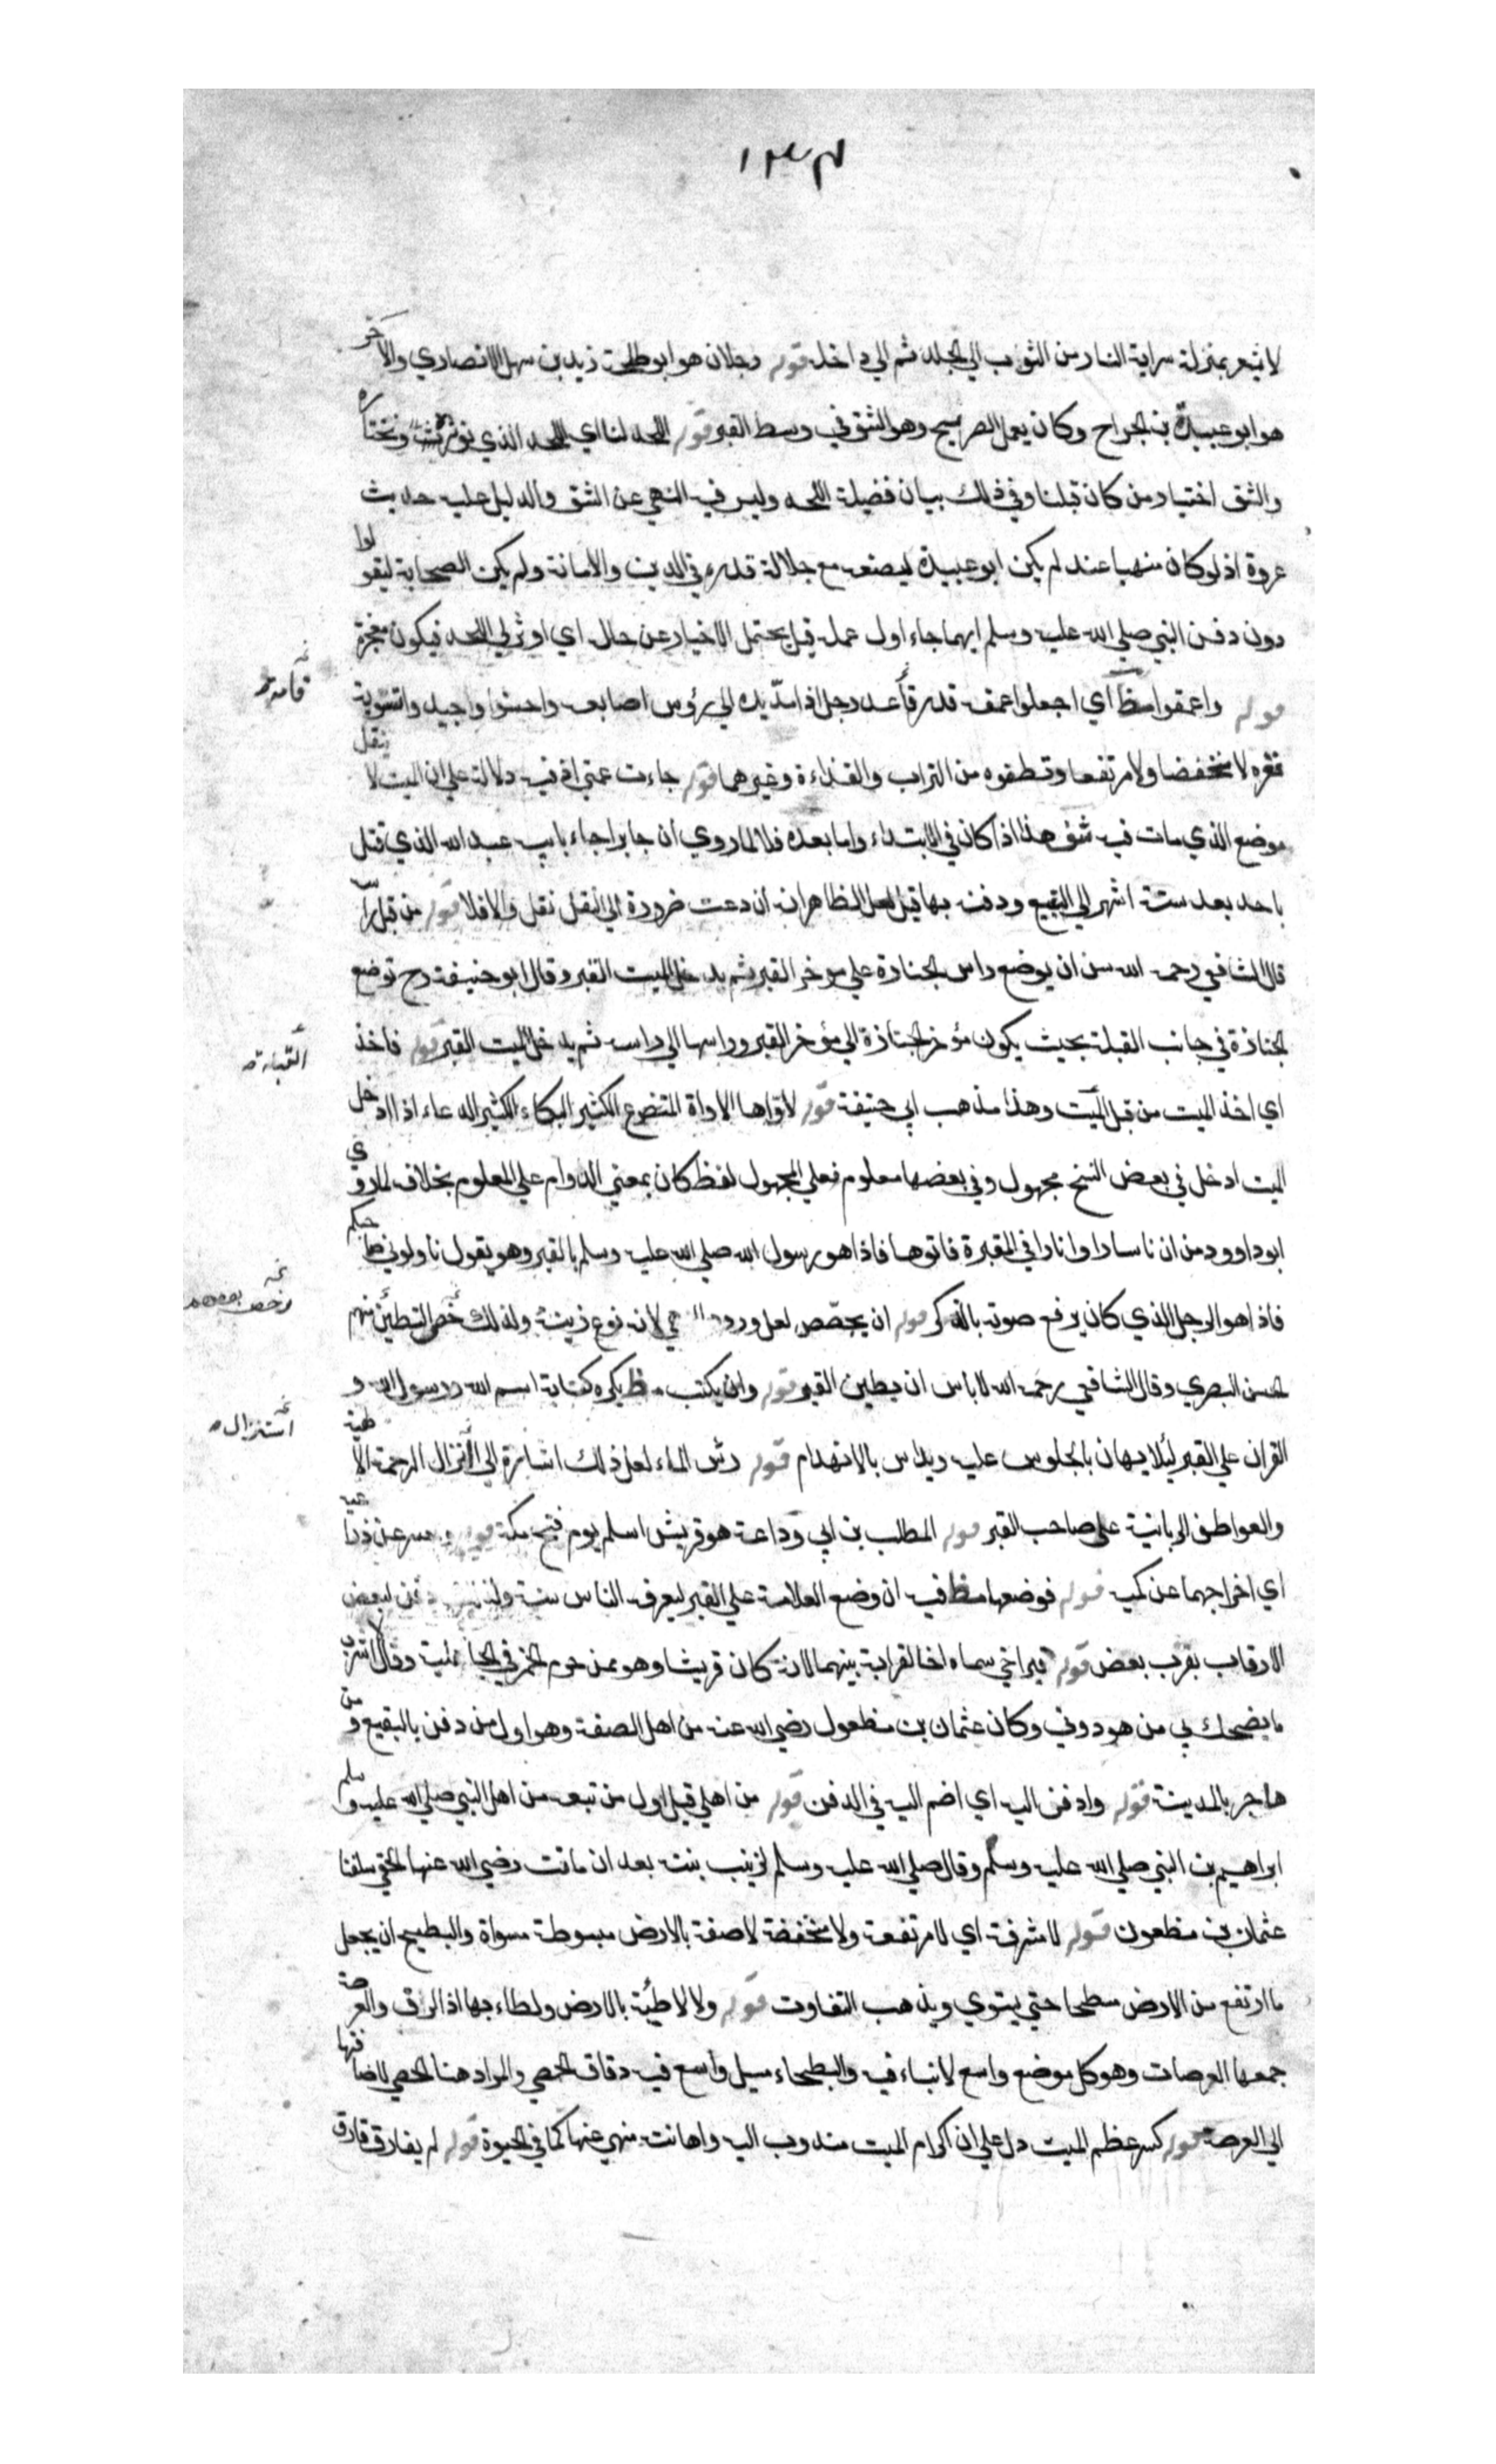 ١٣٤
لا يشعر بمنزلة سراية النار من الثوب الي الجلد ثم الي داخله قوله رجلان هو ابو طلحة زيد بن سهل الانصاري والاخر
هو ابو عبيدة بن الجراح وكان يعمل الضريح وهو الشق في وسط القبر قوله اللحد لنا اي اللحد الذي نوثره ونختاره
والشق اختيار من كان قبلنا وفي ذلك بيان فضيلة اللحد وليس فيه النهي عن الشق والدليل عليه حديث
عروة اذ لو كان منهيا عنه لم يكن ابو عبيدة ليصنعه مع جلالة قدره في الدين والامانة ولم يكن الصحابة ليقولوا
دون دفن النبي صلي الله عليه وسلم ايهما جاء اول عمله قيل يحتمل الاخبار عن حاله اي اوثر لي اللحد فيكون معجزة
قوله واعمقوا اي اجعلوا عمقه قدر قامة رجل اذا مد يده الي رؤس اصابعه واحسنوا واجيدوا تسوية
قعره لا منخفضا ولا مرتفعا وتنظفوه من التراب والقذاءة وغيرهما قوله جاءت عمتي فيه دلالة علي ان الميت لا ينقل
موضع الذي مات فيه شق هذا اذا كان في الابتداء واما بعده فلا لما روي ان جابرا جاء بابيه عبد الله الذي قتل
باحد بعد ستة اشهر الي البقيع ودفنه بها قيل لعل الظاهر انه ان دعت ضرورة الي النقل نقل والا فلا قوله من قبل راسه
قال الشافعي رحمه الله سن ان يوضع راس الجنازة علي موخر القبر ثم يدخل الميت القبر وقال ابو حنيفة رح توضع
الجنازة في جانب القبلة بحيث يكون مؤخر الجنازة الي مؤخر القبر وراسها الي راسه ثم يدخل الميت القبر قوله فاخذ
اي اخذ الميت من قبل الميت وهذا مذهب ابي حنيفة قوله لاواها الاواة المتضرع الكثير البكاء الكثير الدعاء اذا ادخل
الميت ادخل في بعض النسخ مجهول وفي بعضها معلوم فعلي المجهول لفظ كان بمعني الدوام علي المعلوم بخلاف لما روي
ابو داوود من ان ناسا راوا نارا في المقبرة فاتوها فاذا هو رسول الله صلي الله عليه وسلم بالقبر وهو يقول ناولوني صاحبكم
فاذا هو الرجل الذي كان يرفع صوته بالذكر قوله ان يجصص لعل ورود لانه نوع زينة ولذلك خص التطيين منهم
الحسن البصري وقال الشافعي رحمه الله لا باس ان يطين القبر قوله وان يكتب يكره كتابة اسم الله ورسول الله و
القران علي القبر لئلا يهان بالجلوس عليه ويداس بالانهدام قوله رش الماء لعل ذلك اشارة الي انزال الرحمة الالهية
والعواطف الربانية علي صاحب القبر قوله المطلب بن ابي وداعة هو قريش اسلم يوم فتح مكة قوله وحسر عن ذراعيه
اي اخراجهما عن كميه قوله فوضعها فيه ان وضع العلامة علي القبر ليعرفه الناس سنة ولذلك دفن لبعض
الاقارب بقرب بعض قوله قبر اخي سماه اخا لقرابة بينهما لانه كان قريشا وهو ممن حرم الخمر في الجاهلية وقال لا اشرب
ما يضحك بي من هو دوني وكان عثمان بن مظعون رضي الله عنه من اهل الصفة وهو اول من دفن بالبقيع ومن
هاجر بالمدينة قوله وادفن اليه اي اضم اليه في الدفن قوله من اهلي قيل اول من تبعه من اهل النبي صلي الله عليه وسلم
ابراهيم بن النبي صلي الله عليه وسلم وقال صلي الله عليه وسلم لزينب بنته بعد ان ماتت رضي الله عنها الحقي سلفنا
عثمان بن مظعون قوله لا مشرفة اي لا مرتفعة ولا منخفضة لاصقة بالارض مبسوطة مسواة والبطيح ان يجعل
ما ارتفع من الارض مسطحا حتي يستوي ويذهب التفاوت قوله ولا لاطئة بالارض ولطاء بها اذا لزق والعرصة
جمعها العرصات وهو كل موضع واسع لا بناء فيه والبطحاء مسيل واسع فيه دقاق الحصي والمراد هنا الحصي لاضافتها
الي العرصة قوله كسر عظم الميت دل علي ان اكرام الميت مندوب اليه واهانته منهي عنها كما في الحيوة قوله لم يفارق قارف
قامة
القبلة
رخص بعضهم
استنزال